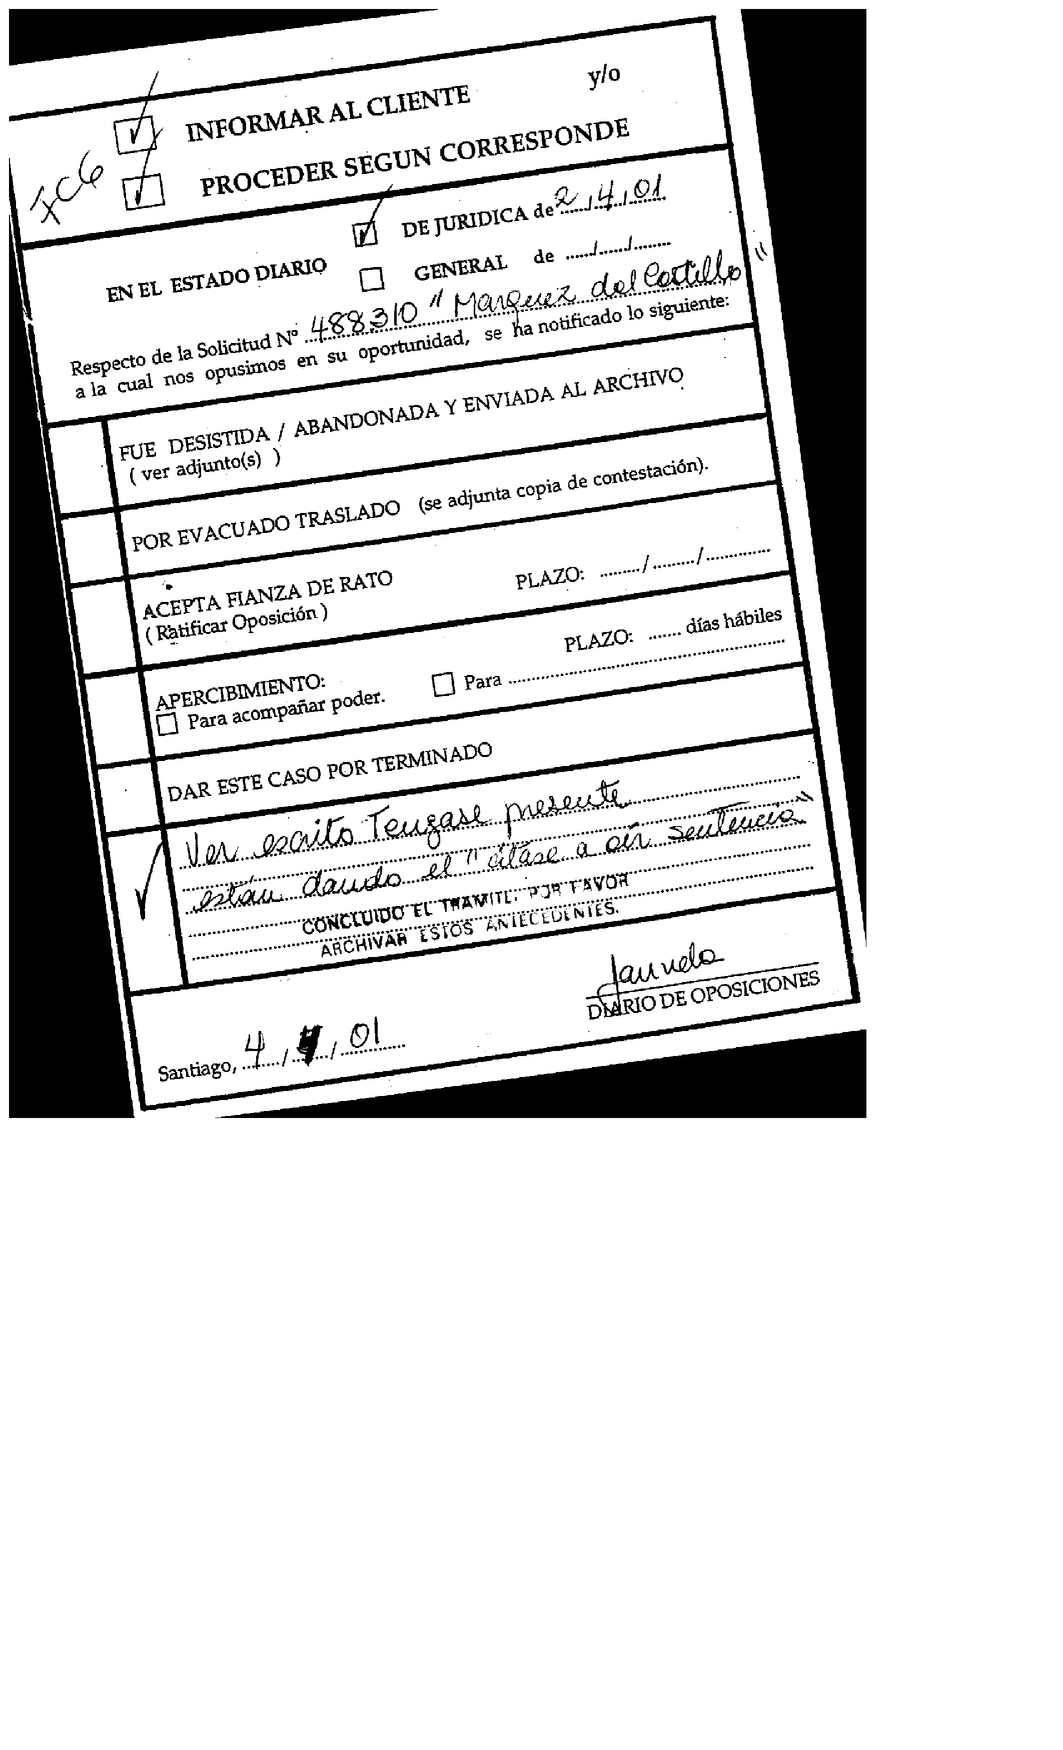 INFORMAR AL CLIENTE y/o
PROCEDER SEGUN CORRESPONDE
EN EL ESTADO DIARIO
DE JURIDICA de 2/4/01
GENERAL de ....../....../........
Respecto de la Solicitud Nº 488.310 "Marquez del Castillo"
a la cual nos opusimos en su oportunidad, se ha notificado lo siguiente:
FUE DESISTIDA / ABANDONADA Y ENVIADA AL ARCHIVO
( ver adjunto(s) )
POR EVACUADO TRASLADO (se adjunta copia de contestación).
ACEPTA FIANZA DE RATO PLAZO: ........./........./.............
( Ratificar Oposición )
APERCIBIMIENTO: PLAZO: ....... días hábiles
Para acompañar poder. Para ........................
DAR ESTE CASO POR TERMINADO
Ver escrito Tengase presente
están dando el "citase a oir sentencia"
CONCLUIDO EL TRAMITE. POR FAVOR
ARCHIVAR ESTOS ANTECEDENTES.
DIARIO DE OPOSICIONES
Santiago, 4/4/01